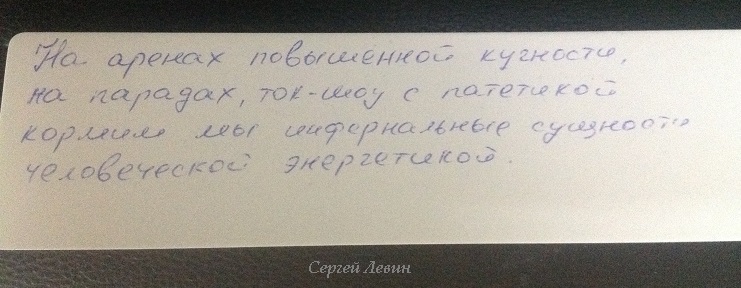 На аренах повышенной кучности,
на парадах, ток-шоу с патетикой
кормим мы инфернальные сущности
человеческой энергетикой.
Сергей Левин